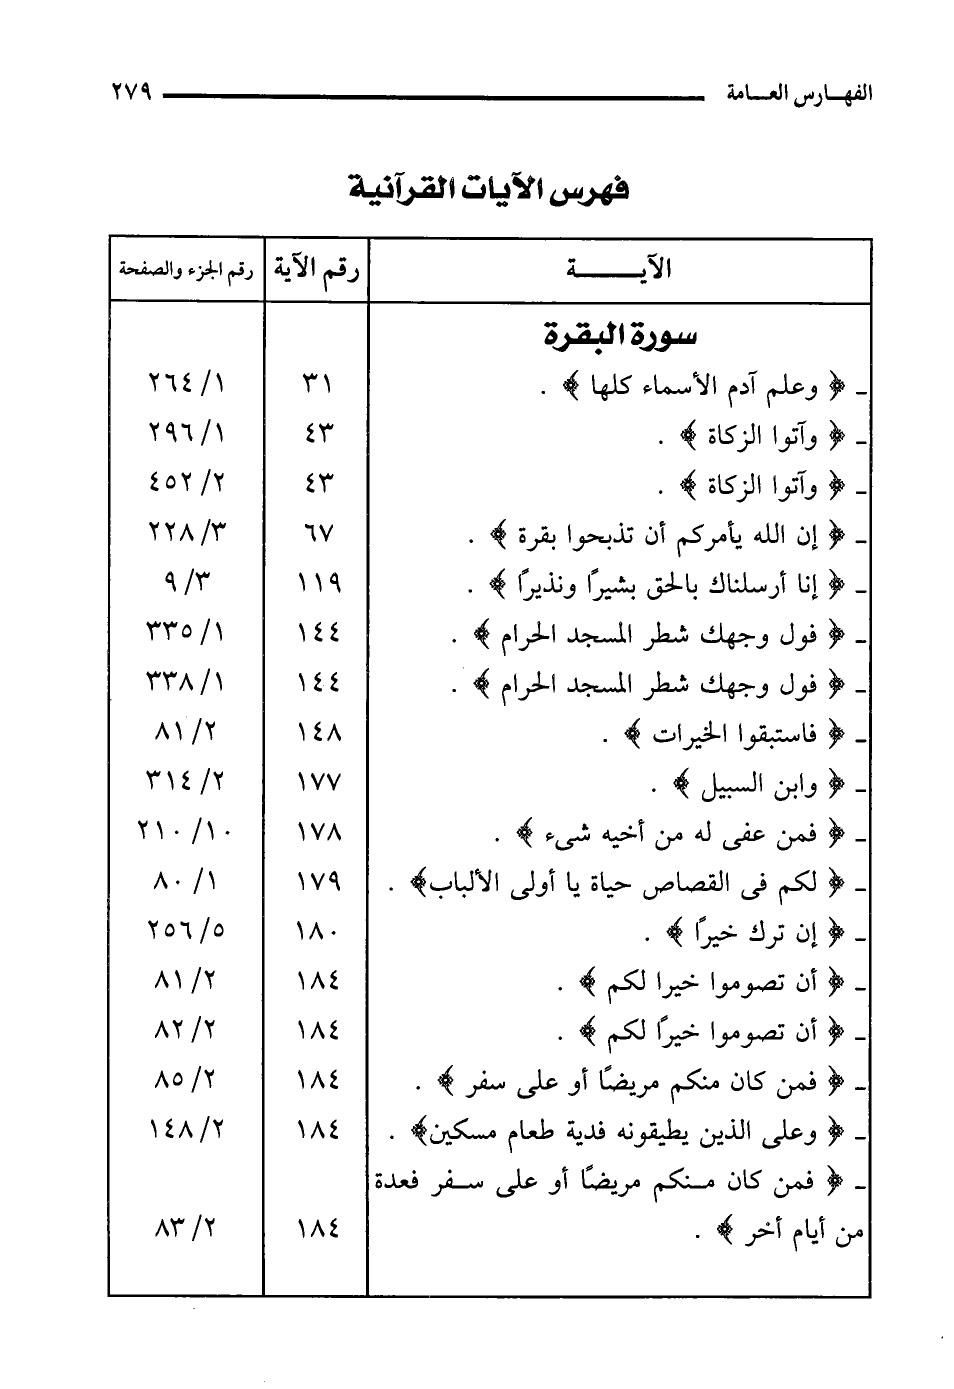 الفهـارس العـامة ٢٧٩
فهرس الآيات القرآنية
الآيـــــة رقم الآية رقم الجزء والصفحة
سورة البقرة
ـ ﴿ وعلم آدم الأسماء كلها ﴾ . ٣١ ١/ ٢٦٤
ـ ﴿ وآتوا الزكاة ﴾ . ٤٣ ١/ ٢٩٦
ـ ﴿ وآتوا الزكاة ﴾ . ٤٣ ٢/ ٤٥٢
ـ ﴿ إن الله يأمركم أن تذبحوا بقرة ﴾ . ٦٧ ٣/ ٢٢٨
ـ ﴿ إنا أرسلناك بالحق بشيرًا ونذيرًا ﴾ . ١١٩ ٣/ ٩
ـ ﴿ فول وجهك شطر المسجد الحرام ﴾ . ١٤٤ ١/ ٣٣٥
ـ ﴿ فول وجهك شطر المسجد الحرام ﴾ . ١٤٤ ١/ ٣٣٨
ـ ﴿ فاستبقوا الخيرات ﴾ . ١٤٨ ٢/ ٨١
ـ ﴿ وابن السبيل ﴾ . ١٧٧ ٢/ ٣١٤
ـ ﴿ فمن عفى له من أخيه شىء ﴾ . ١٧٨ ١٠/ ٢١٠
ـ ﴿ لكم فى القصاص حياة يا أولى الألباب﴾ . ١٧٩ ١/ ٨٠
ـ ﴿ إن ترك خيرًا ﴾ . ١٨٠ ٥/ ٢٥٦
ـ ﴿ أن تصوموا خيرا لكم ﴾ . ١٨٤ ٢/ ٨١
ـ ﴿ أن تصوموا خيرًا لكم ﴾ . ١٨٤ ٢/ ٨٢
ـ ﴿ فمن كان منكم مريضًا أو على سفر ﴾ . ١٨٤ ٢/ ٨٥
ـ ﴿ وعلى الذين يطيقونه فدية طعام مسكين﴾ . ١٨٤ ٢/ ١٤٨
ـ ﴿ فمن كان مـنكم مريضًا أو على سـفر فعدة
من أيام أخر ﴾ . ١٨٤ ٢/ ٨٣